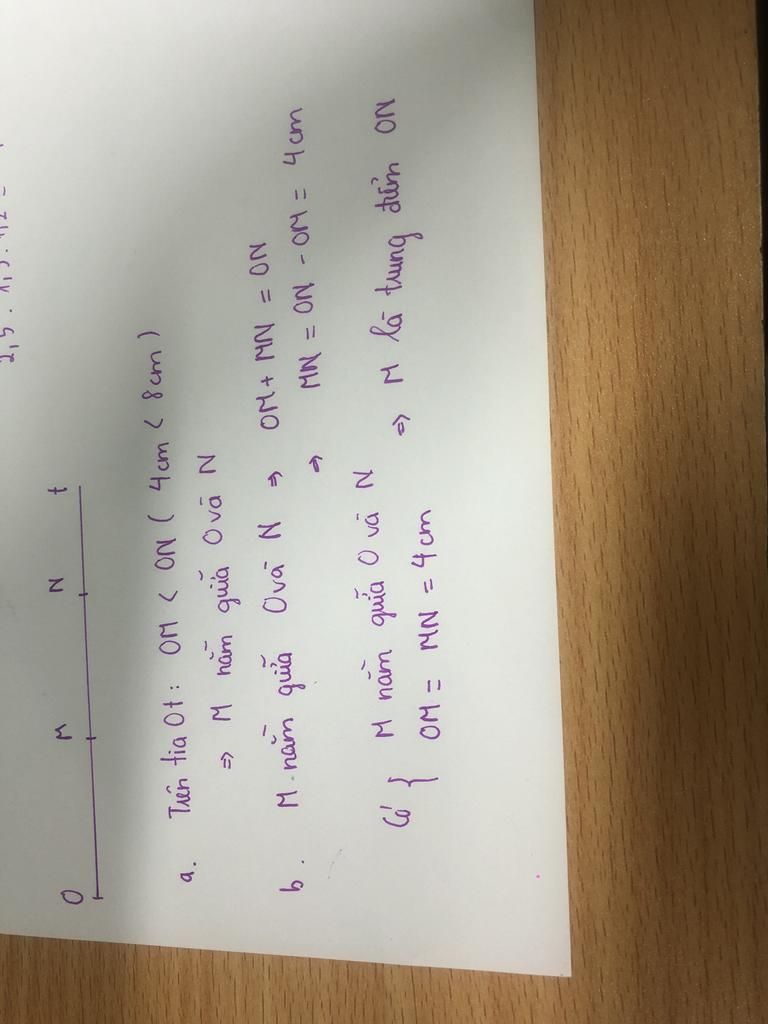 O M N t
a. Trên tia Ot : OM < ON ( 4cm < 8cm )
=> M nằm giữa O và N
b. M nằm giữa O và N => OM + MN = ON
=> MN = ON - OM = 4cm
Có { M nằm giữa O và N => M là trung điểm ON
OM = MN = 4cm